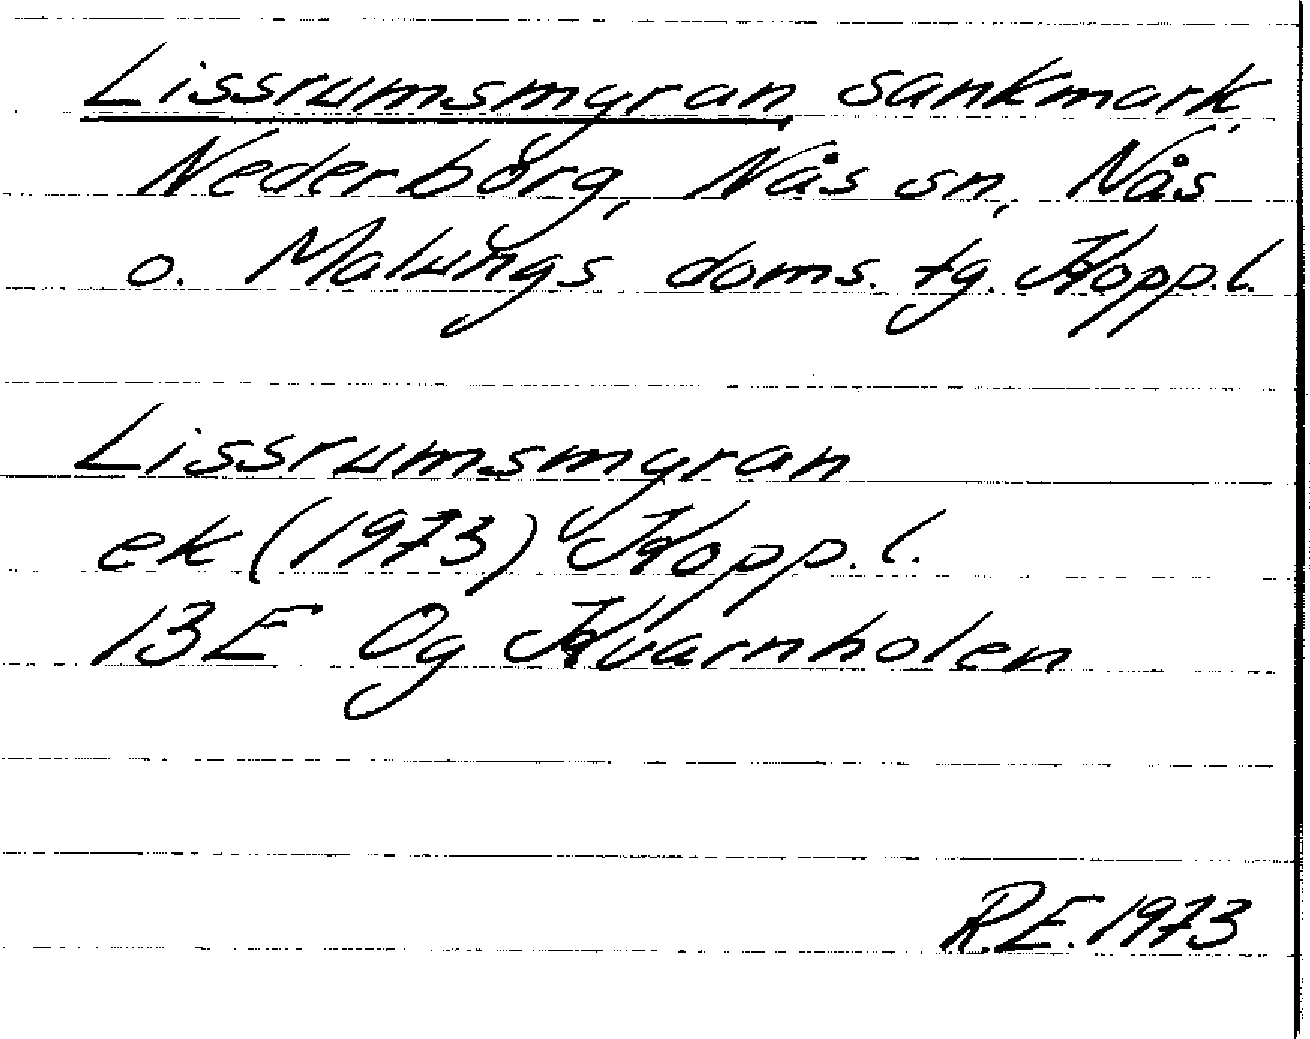 Lissrumsmyran sankmark,
Nederborg, Nås sn, Nås
o. Malungs doms. tg. Kopp.l.
Lissrumsmyran
ek (1973) Kopp.l.
13E Og Kvarnholen
R.E. 1973